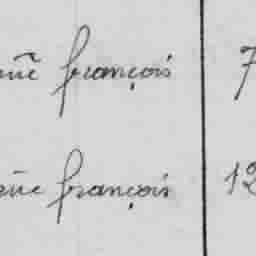 françois 7
françois 12